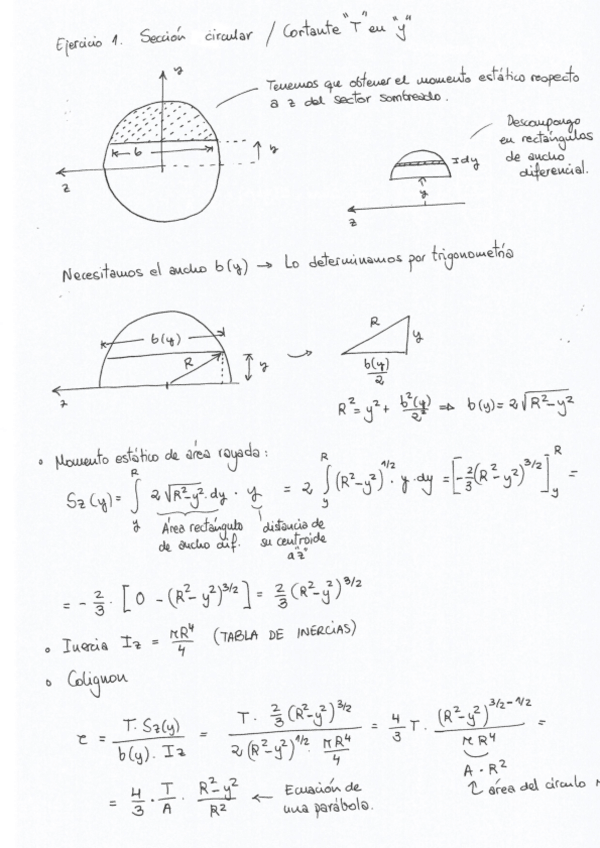 Ejercicio 1. Sección circular / Cortante "T" en "y"
y
Tenemos que obtener el momento estático respecto
a z del sector sombreado.
b
y
z
Descompongo
en rectángulos
de ancho
diferencial.
dy
y
z
Necesitamos el ancho b(y) → Lo determinamos por trigonometría
b(y)
R
y
z
R
y
b(y)/2
R² = y² + b²(y)/2² ⇒ b(y) = 2√(R²-y²)
• Momento estático de área rayada:
Sz(y) = ∫_y^R 2√(R²-y²) · dy · y = 2 ∫_y^R (R²-y²)^1/2 · y · dy = [-2/3 (R²-y²)^3/2]_y^R =
Área rectángulo
de ancho dif.
distancia de
su centroide
a "z"
= -2/3 · [0 - (R²-y²)^3/2] = 2/3 (R²-y²)^3/2
• Inercia Iz = πR⁴/4 (TABLA DE INERCIAS)
• Colignon
τ = T · Sz(y) / b(y) · Iz = T · 2/3 (R²-y²)^3/2 / 2(R²-y²)^1/2 · πR⁴/4 = 4/3 T · (R²-y²)^3/2-1/2 / πR⁴ =
A · R²
área del circulo
= 4/3 · T/A · R²-y²/R² ← Ecuación de
una parábola.